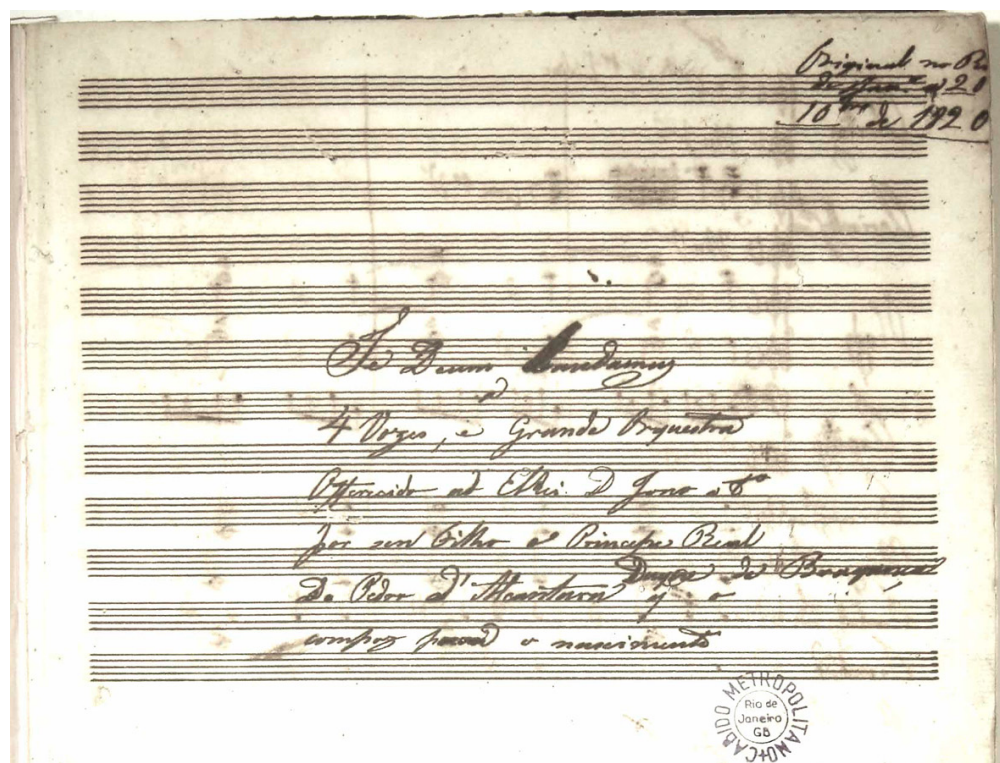 Original no R
de Jan.º a 20
10br de 1820
Te Deum Laudamus
a
4 Vozes, e Grande Orquestra
Offerecido ad ElRei D Joao o 6º
por seu Filho o Principe Real
Duque de Bragança
D. Pedro d'Alcantara q o
compoz para o nascimento
CABIDO METROPOLITANO
Rio de
Janeiro
GB